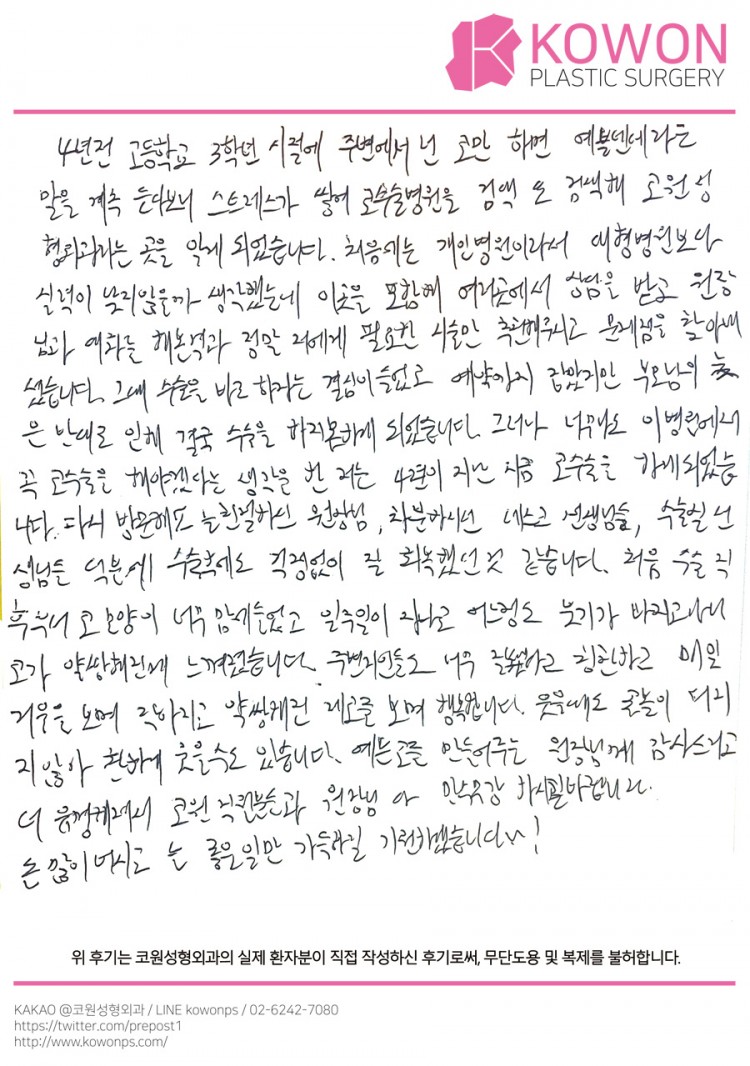 KOWON
PLASTIC SURGERY
4년전 고등학교 3학년 시절에 주변에서 넌 코만 하면 예쁠텐데라는
말을 계속 듣다보니 스트레스가 쌓여 코수술병원을 검색 또 검색해 코원성
형외과라는 곳을 알게 되었습니다. 처음에는 개인병원이라서 대형병원보다
실력이 낮지않을까 생각했는데 이곳을 포함해 여러곳에서 상담을 받고 원장
님과 대화를 해본결과 정말 저에게 필요한 시술만 추천해주시고 문제점을 찾아내
셨습니다. 그래 수술을 바로 하자는 결심이 들었고 예약까지 잡았지만 부모님의
은 반대로 인해 결국 수술을 하지못하게 되었습니다. 그러나 너무나도 이병원에서
꼭 코수술을 해야겠다는 생각을 한 저는 4년이 지난 지금 코수술을 하게되었습
니다. 다시 방문해도 늘친절하신 원장님, 차분하시던 데스크 선생님들, 수술실 선
생님들 덕분에 수술후에도 걱정없이 잘 회복했던것 같습니다. 처음 수술 직
후부터 코모양이 너무 맘에들었고 일주일이 지나고 어느정도 붓기가 빠지고나니
코가 얄쌍해진게 느껴졌습니다. 주변지인들도 너무 잘됐다고 칭찬하고 매일
거울을 보며 작아지고 얄쌍해진 제코를 보며 행복합니다. 웃을때도 콧볼이 퍼지
지않아 환하게 웃을수도 있습니다. 예쁜코를 만들어주는 원장님께 감사드리고
더 유명해져서 코원 직원분들과 원장님 만수무강 하시길바랍니다.
돈 많이버시고 늘 좋은일만 가득하길 기원하겠습니다~!
위 후기는 코원성형외과의 실제 환자분이 직접 작성하신 후기로써, 무단도용 및 복제를 불허합니다.
KAKAO @코원성형외과 / LINE kowonps / 02-6242-7080
https://twitter.com/prepost1
http://www.kowonps.com/